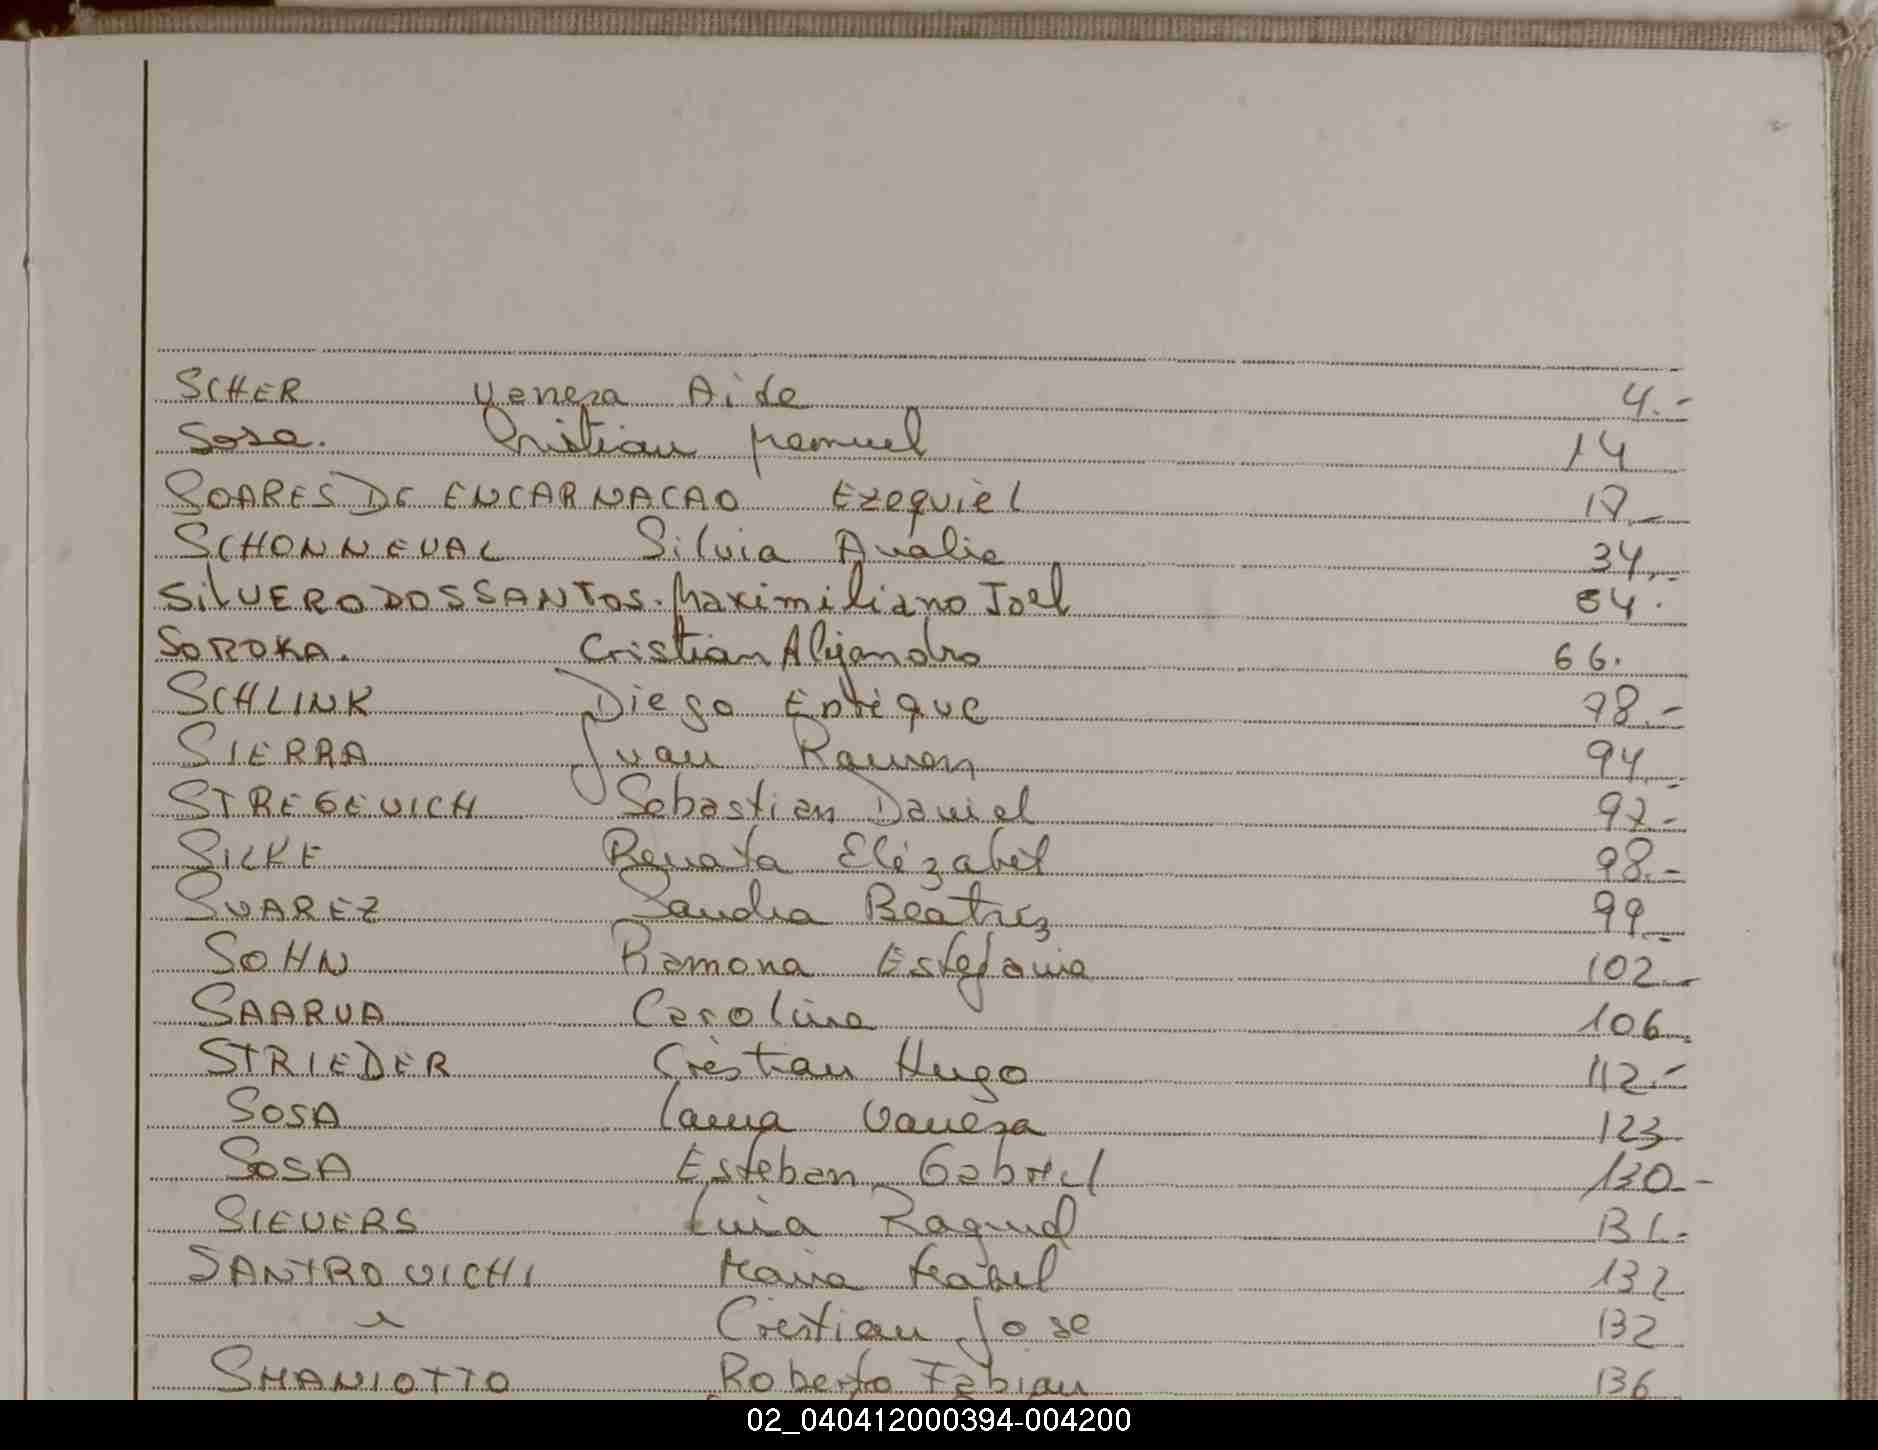 SCHER Vanesa Aide 4.-
Sosa. Cristian Manuel 14
SOARES DE ENCARNACAO Ezequiel 17.-
SCHONNEVAL Silvia Analia 34.-
SILVERO DOS SANTOS. Maximiliano Joel 54.
SOROKA. Cristian Alejandro 66.
SCHLINK Diego Enrique 78.-
SIERRA Juan Ramon 94.-
STREGEVICH Sebastian Daniel 97.-
SILKE Renata Elizabet 98.-
SUAREZ Sandra Beatriz 99.-
SOHN Ramona Estefania 102.-
SAARVA Carolina 106.
STRIEDER Cristian Hugo 112.-
SOSA Laura Vanesa 123
SOSA Esteban Gabriel 130.-
SIEVERS Raquel 131.-
SANTROVICHI Maria Mabel 132
Cristian Jose 132
SMANIOTTO Roberto Fabian 136
02_040412000394-004200